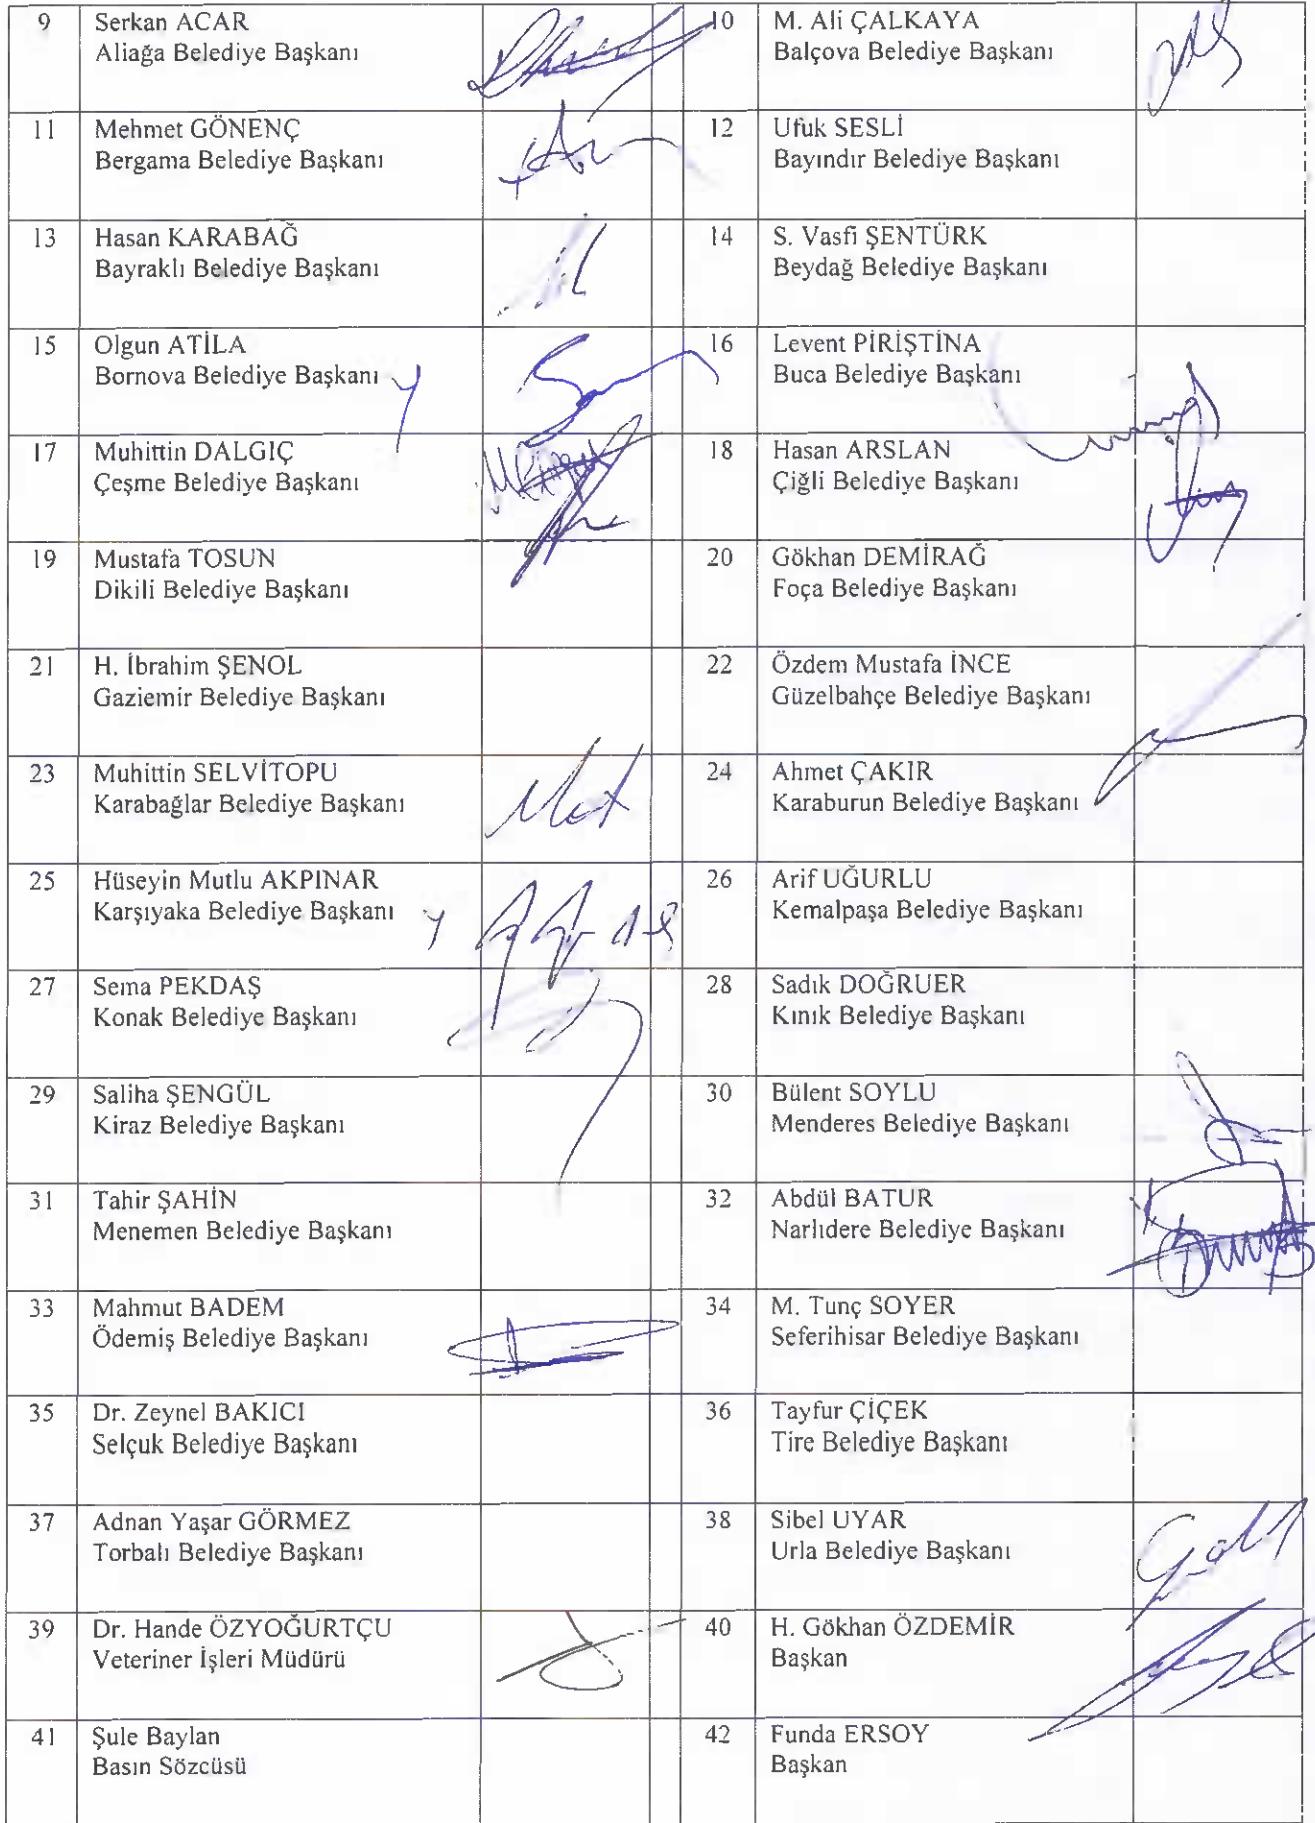 9 Serkan ACAR
Aliağa Belediye Başkanı
10 M. Ali ÇALKAYA
Balçova Belediye Başkanı
11 Mehmet GÖNENÇ
Bergama Belediye Başkanı
12 Ufuk SESLİ
Bayındır Belediye Başkanı
13 Hasan KARABAĞ
Bayraklı Belediye Başkanı
14 S. Vasfi ŞENTÜRK
Beydağ Belediye Başkanı
15 Olgun ATİLA
Bornova Belediye Başkanı
16 Levent PİRİŞTİNA
Buca Belediye Başkanı
17 Muhittin DALGIÇ
Çeşme Belediye Başkanı
18 Hasan ARSLAN
Çiğli Belediye Başkanı
19 Mustafa TOSUN
Dikili Belediye Başkanı
20 Gökhan DEMİRAĞ
Foça Belediye Başkanı
21 H. İbrahim ŞENOL
Gaziemir Belediye Başkanı
22 Özdem Mustafa İNCE
Güzelbahçe Belediye Başkanı
23 Muhittin SELVİTOPU
Karabağlar Belediye Başkanı
24 Ahmet ÇAKIR
Karaburun Belediye Başkanı
25 Hüseyin Mutlu AKPINAR
Karşıyaka Belediye Başkanı
26 Arif UĞURLU
Kemalpaşa Belediye Başkanı
27 Sema PEKDAŞ
Konak Belediye Başkanı
28 Sadık DOĞRUER
Kınık Belediye Başkanı
29 Saliha ŞENGÜL
Kiraz Belediye Başkanı
30 Bülent SOYLU
Menderes Belediye Başkanı
31 Tahir ŞAHİN
Menemen Belediye Başkanı
32 Abdül BATUR
Narlıdere Belediye Başkanı
33 Mahmut BADEM
Ödemiş Belediye Başkanı
34 M. Tunç SOYER
Seferihisar Belediye Başkanı
35 Dr. Zeynel BAKICI
Selçuk Belediye Başkanı
36 Tayfur ÇİÇEK
Tire Belediye Başkanı
37 Adnan Yaşar GÖRMEZ
Torbalı Belediye Başkanı
38 Sibel UYAR
Urla Belediye Başkanı
39 Dr. Hande ÖZYOĞURTÇU
Veteriner İşleri Müdürü
40 H. Gökhan ÖZDEMİR
Başkan
41 Şule Baylan
Basın Sözcüsü
42 Funda ERSOY
Başkan